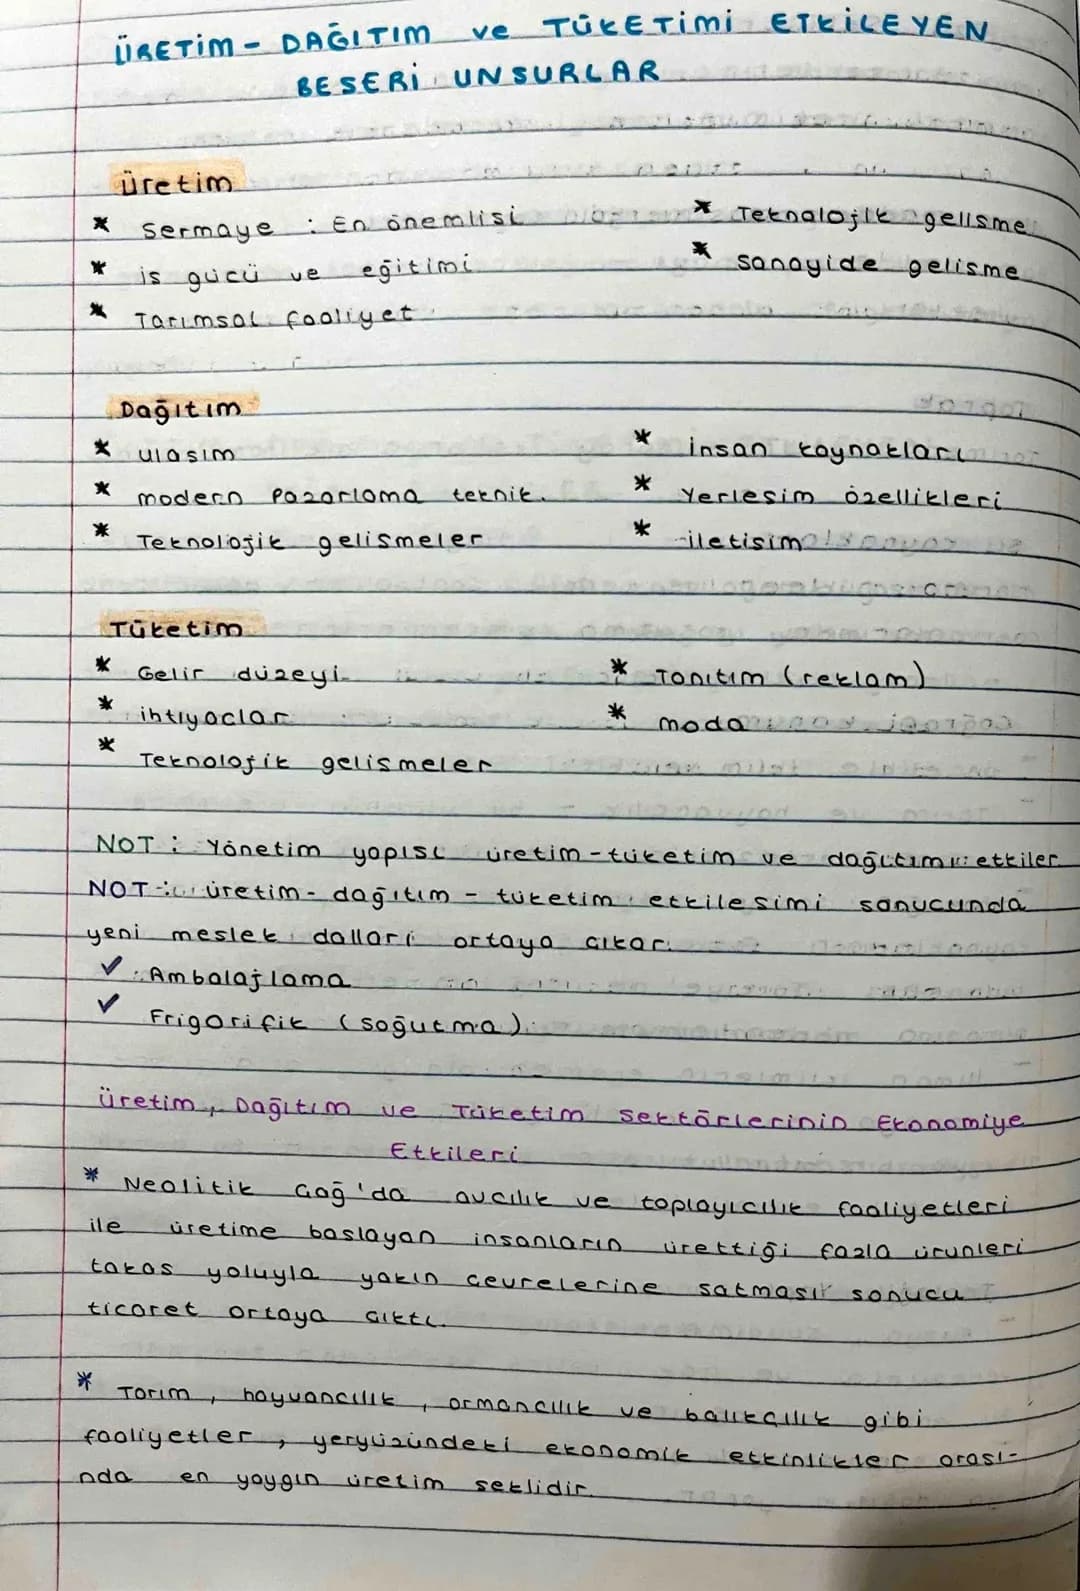 ÜRETİM - DAĞITIM ve TÜKETİMİ ETKİLEYEN
BESERİ UNSURLAR
üretim
* Sermaye : En önemlisi
* is gücü ve eğitimi
* Tarımsal faaliyet
* Teknalojik gelisme
* Sanayide gelisme
Dağıtım
* ulasım
* modern Pazarlama teknik.
* Teknolojik gelismeler
* İnsan kaynakları
* Yerlesim özellikleri
* iletisim
Tüketim
* Gelir düzeyi
* ihtiyaclar
* Teknolojik gelismeler
* Tanıtım (reklam)
* moda
NOT : Yönetim yapısı üretim-tüketim ve dağıtımı etkiler
NOT : üretim - dağıtım - tüketim etkilesimi sonucunda
yeni meslek dalları ortaya cıkar.
✓ Ambalajlama
✓ Frigorifik (soğutma)
üretim, Dağıtım ve Tüketim Sektörlerinin Ekonomiye
Etkileri
* Neolitik Cağ'da avcılık ve toplayıcılık faaliyetleri
ile üretime baslayan insanların ürettiği fazla ürünleri
takas yoluyla yakın cevrelerine satması sonucu
ticaret ortaya cıktı.
* Tarım, hayvancılık, ormancılık ve balıkcılık gibi
faaliyetler, yeryüzündeki ekonomik etkinlikler arası-
nda en yaygın üretim seklidir.